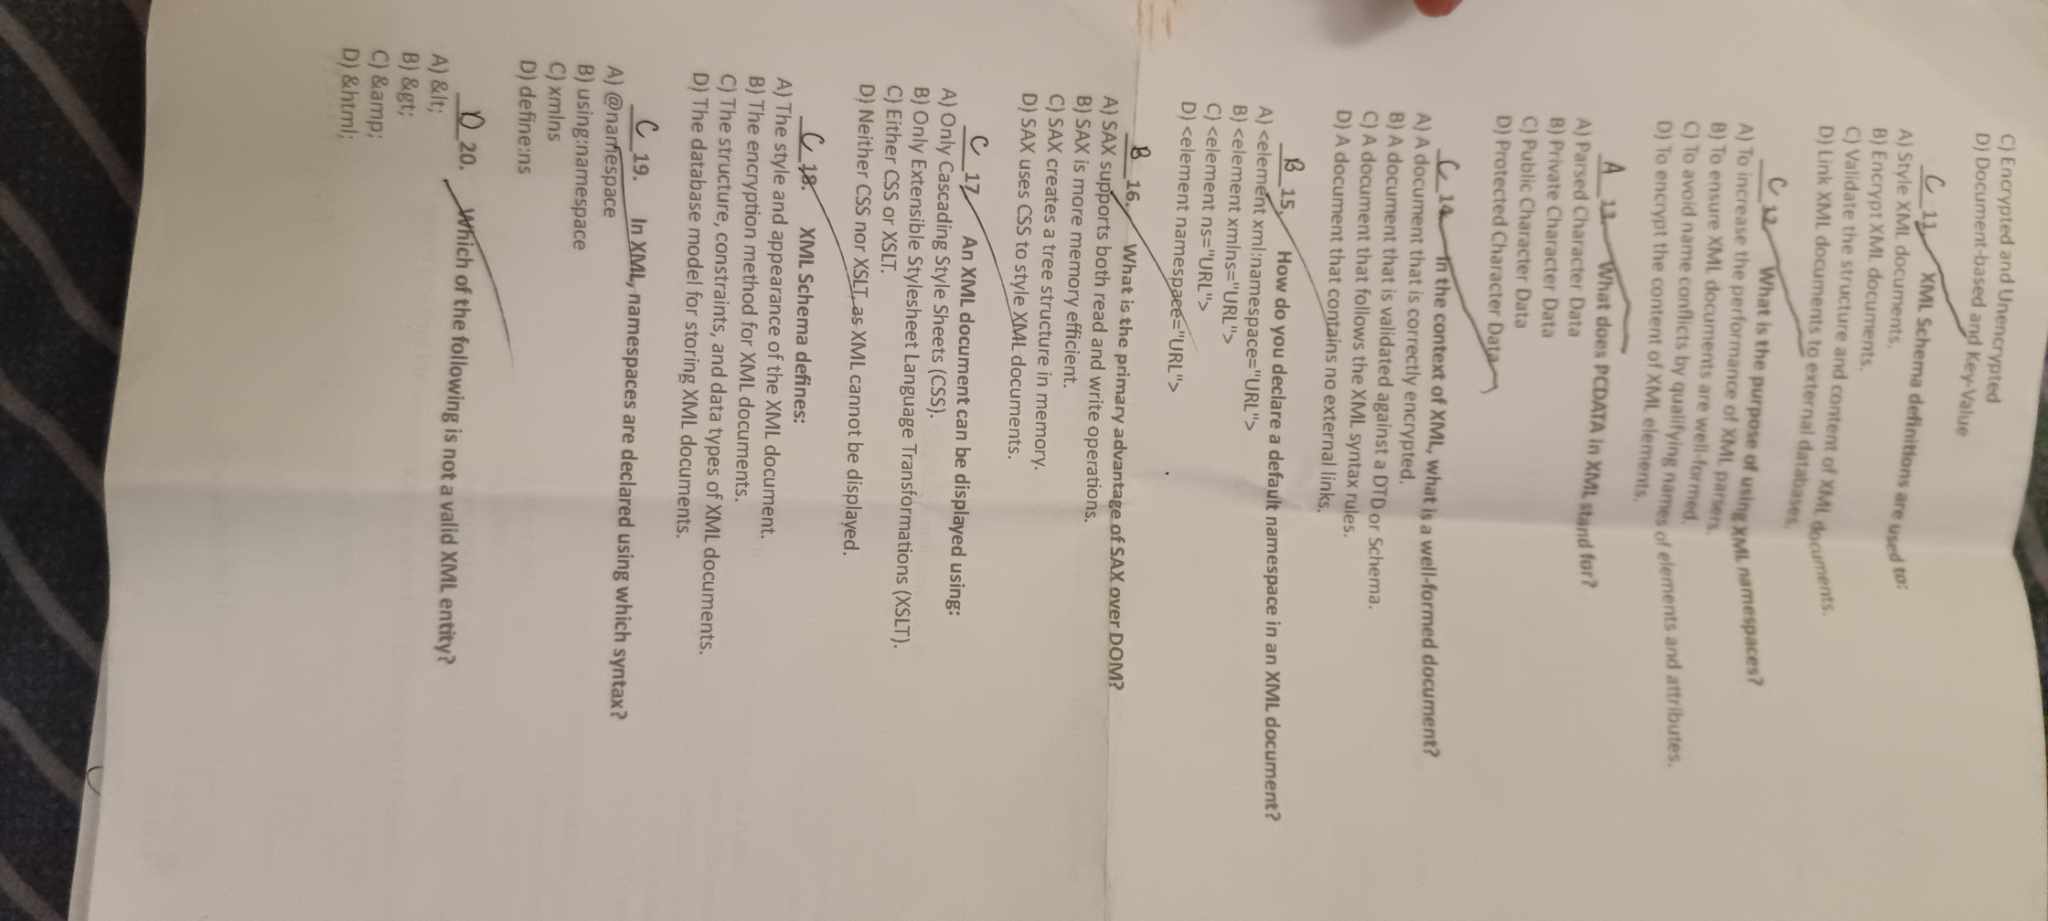 C) Encrypted and Unencrypted
D) Document-based and Key-Value
C 11. XML Schema definitions are used to:
A) Style XML documents.
B) Encrypt XML documents.
C) Validate the structure and content of XML documents.
D) Link XML documents to external databases.
C 12. What is the purpose of using XML namespaces?
A) To increase the performance of XML parsers.
B) To ensure XML documents are well-formed.
C) To avoid name conflicts by qualifying names of elements and attributes.
D) To encrypt the content of XML elements.
A 13. What does PCDATA in XML stand for?
A) Parsed Character Data
B) Private Character Data
C) Public Character Data
D) Protected Character Data
C 14. In the context of XML, what is a well-formed document?
A) A document that is correctly encrypted.
B) A document that is validated against a DTD or Schema.
C) A document that follows the XML syntax rules.
D) A document that contains no external links.
B 15. How do you declare a default namespace in an XML document?
A) <element xml:namespace="URL">
B) <element xmlns="URL">
C) <element ns="URL">
D) <element namespace="URL">
B 16. What is the primary advantage of SAX over DOM?
A) SAX supports both read and write operations.
B) SAX is more memory efficient.
C) SAX creates a tree structure in memory.
D) SAX uses CSS to style XML documents.
C 17. An XML document can be displayed using:
A) Only Cascading Style Sheets (CSS).
B) Only Extensible Stylesheet Language Transformations (XSLT).
C) Either CSS or XSLT.
D) Neither CSS nor XSLT, as XML cannot be displayed.
C 18. XML Schema defines:
A) The style and appearance of the XML document.
B) The encryption method for XML documents.
C) The structure, constraints, and data types of XML documents.
D) The database model for storing XML documents.
C 19. In XML, namespaces are declared using which syntax?
A) @namespace
B) using:namespace
C) xmlns
D) define:ns
D 20. Which of the following is not a valid XML entity?
A) &lt;
B) &gt;
C) &amp;
D) &html;